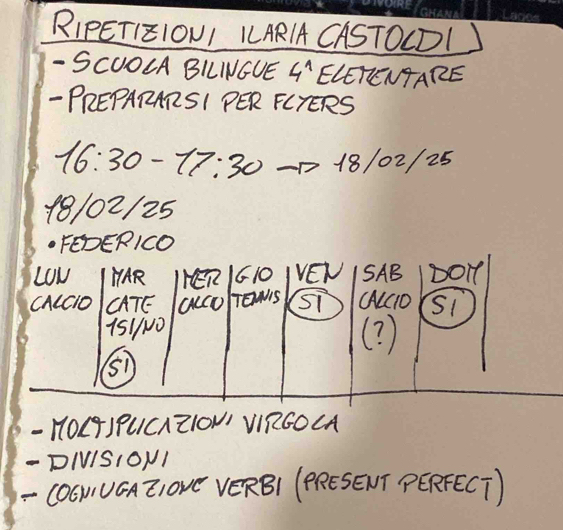 DIVOIRE
GHANA
Lagos
RIPETIZIONI ILARIA CASTOLDI
- SCUOLA BILINGUE 4^ ELEMENTARE
- PREPARARSI PER FLYERS
16:30 - 17:30 → 18/02/25
18/02/25
• FEDERICO
LUN MAR MER GIO VEN SAB DOM
CALCIO CATE CALCIO TENNIS SI CALCIO SI
1SI/NO (?)
SI
- MOLTIPLICAZIONI VIRGOLA
- DIVISIONI
- COGNIUGAZIONE VERBI (PRESENT PERFECT)